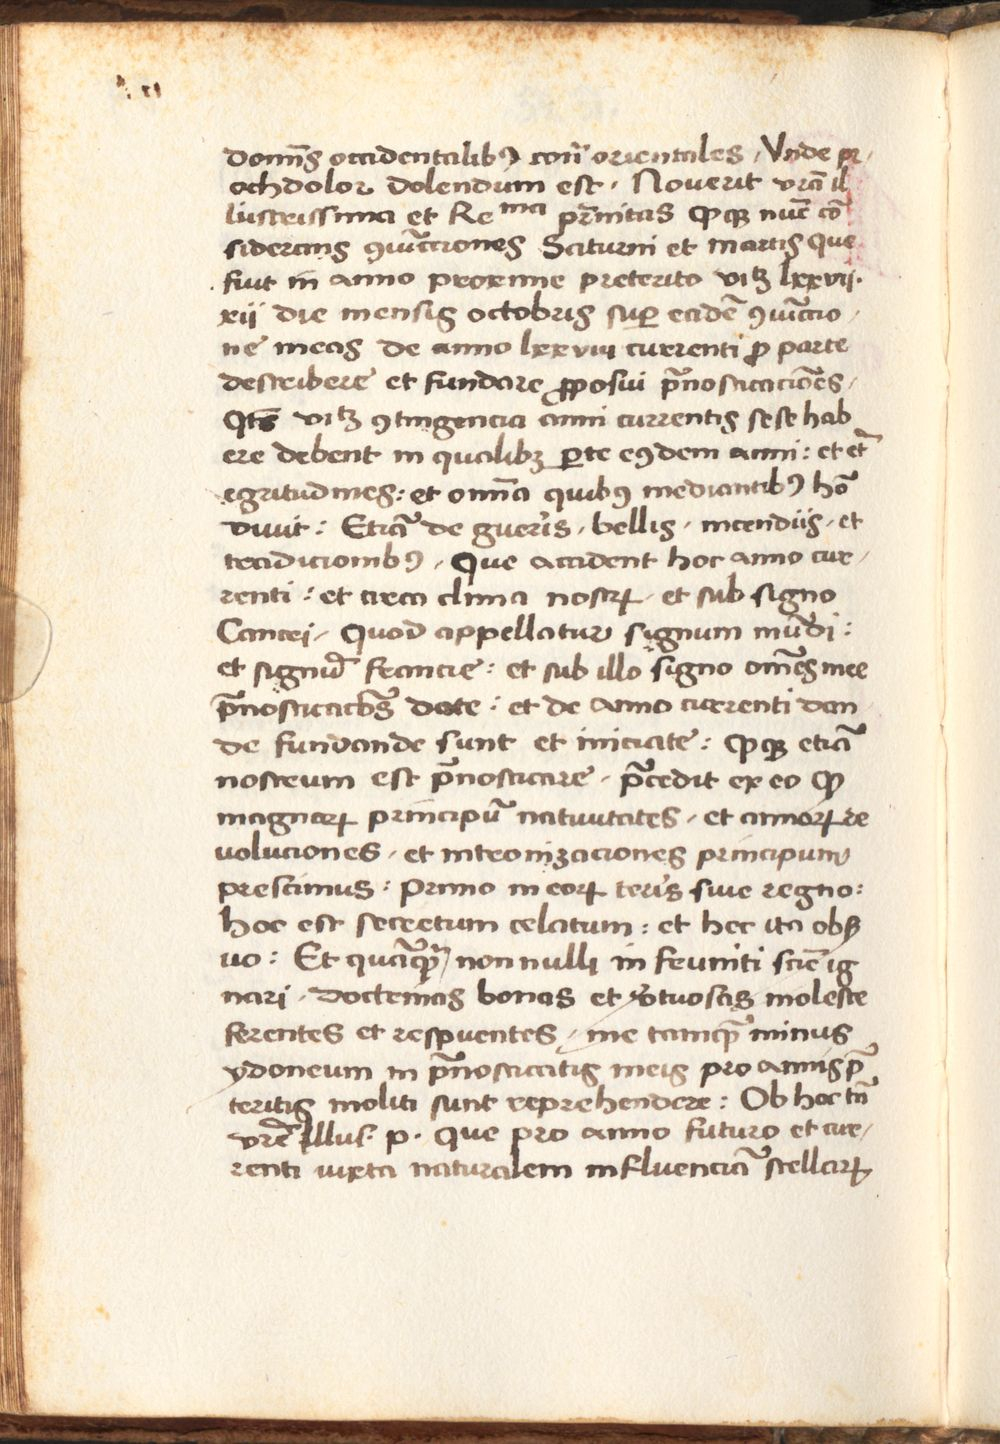 domīs occidentalibꝰ con̄ orientales . Vnde pr,
ochdolor dolendum est . Noverit vrā il
lustrissima et Reᵐᵃ pr̄nitas Qꝫ nūc cō
siderans ꝯiūcciones Saturni et martis que
fuit in anno proxime preterito vitꝫ lxxvij.
xij die mensis octobris super eadē ꝯiūctio,
ne meas de anno lxxviii currenti ꝓ parte
describere et fundare ꝓposui p̄nosticaciōes,
vitꝫ ꝯtingencia anni currentis sese hab
ere debent in qualibꝫ ꝑte eꝯdem anni : et et̄
egritudines : et omīa quibꝯ mediantibꝰ hō
viuit : Eticā de guerris . bellis . incendiis . et
tradicionibꝰ . Que accident hoc anno cur,
renti : et circa clima nostrꝝ . et sub signo
Cancri , Quod appellatur signum mūdi :
et signū francie : et sub illo signo om̄es mee
p̄nosticacōes date : et de anno currenti dan
de fundande sunt et iniciate : Qꝫ etiā
nostrum est p̄nosticare . p̄cedit ex eo Qꝫ
magnorꝝ principū natiuitates . et annorꝝ re
voluciones . et intronizaciones principum
prescimus : Primo in eorꝝ terris siue regno :
hoc est secretum celatum : et hec ita obẜ
uo : Et quāqꝫ nonnulli in feuniti sciē ig
nari . doctrinas bonas et v̓tuosas moleste
ferentes et respuentes , me tamqꝫ minus
ydoneum in p̄nosticatis meis pro annis p̄
teritis moliti sunt reprehendere : Ob hoc tn̄
vrē Illus. p . que pro anno futuro et cur,
renti iuxta naturalem influenciā stellarꝝ